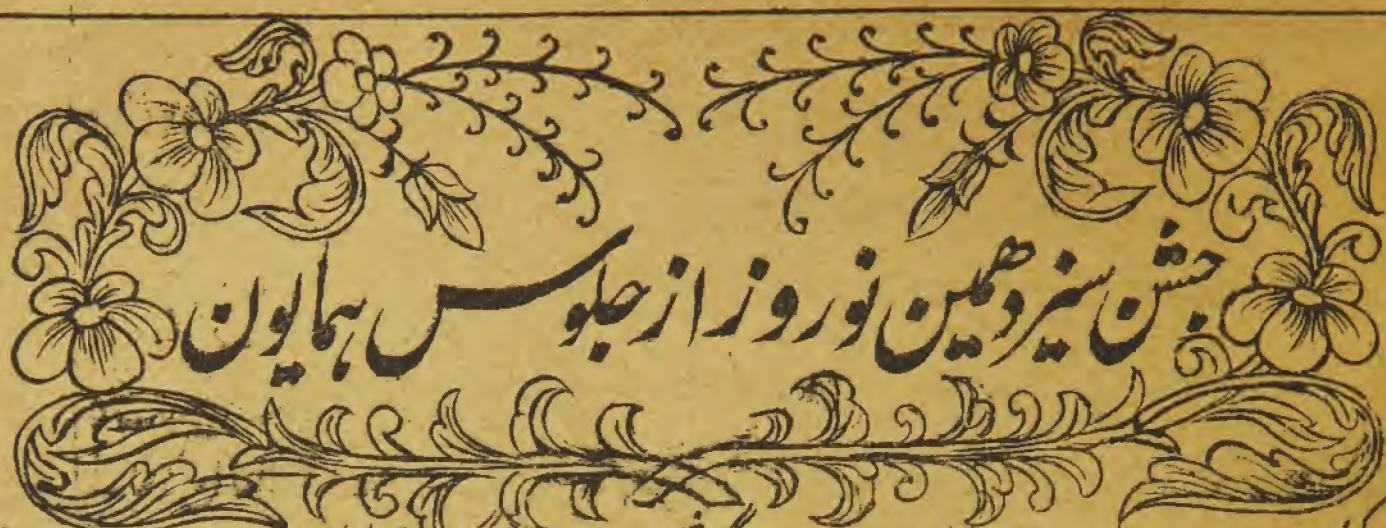 جشن سیزدهمین نوروز از جلوس همایون